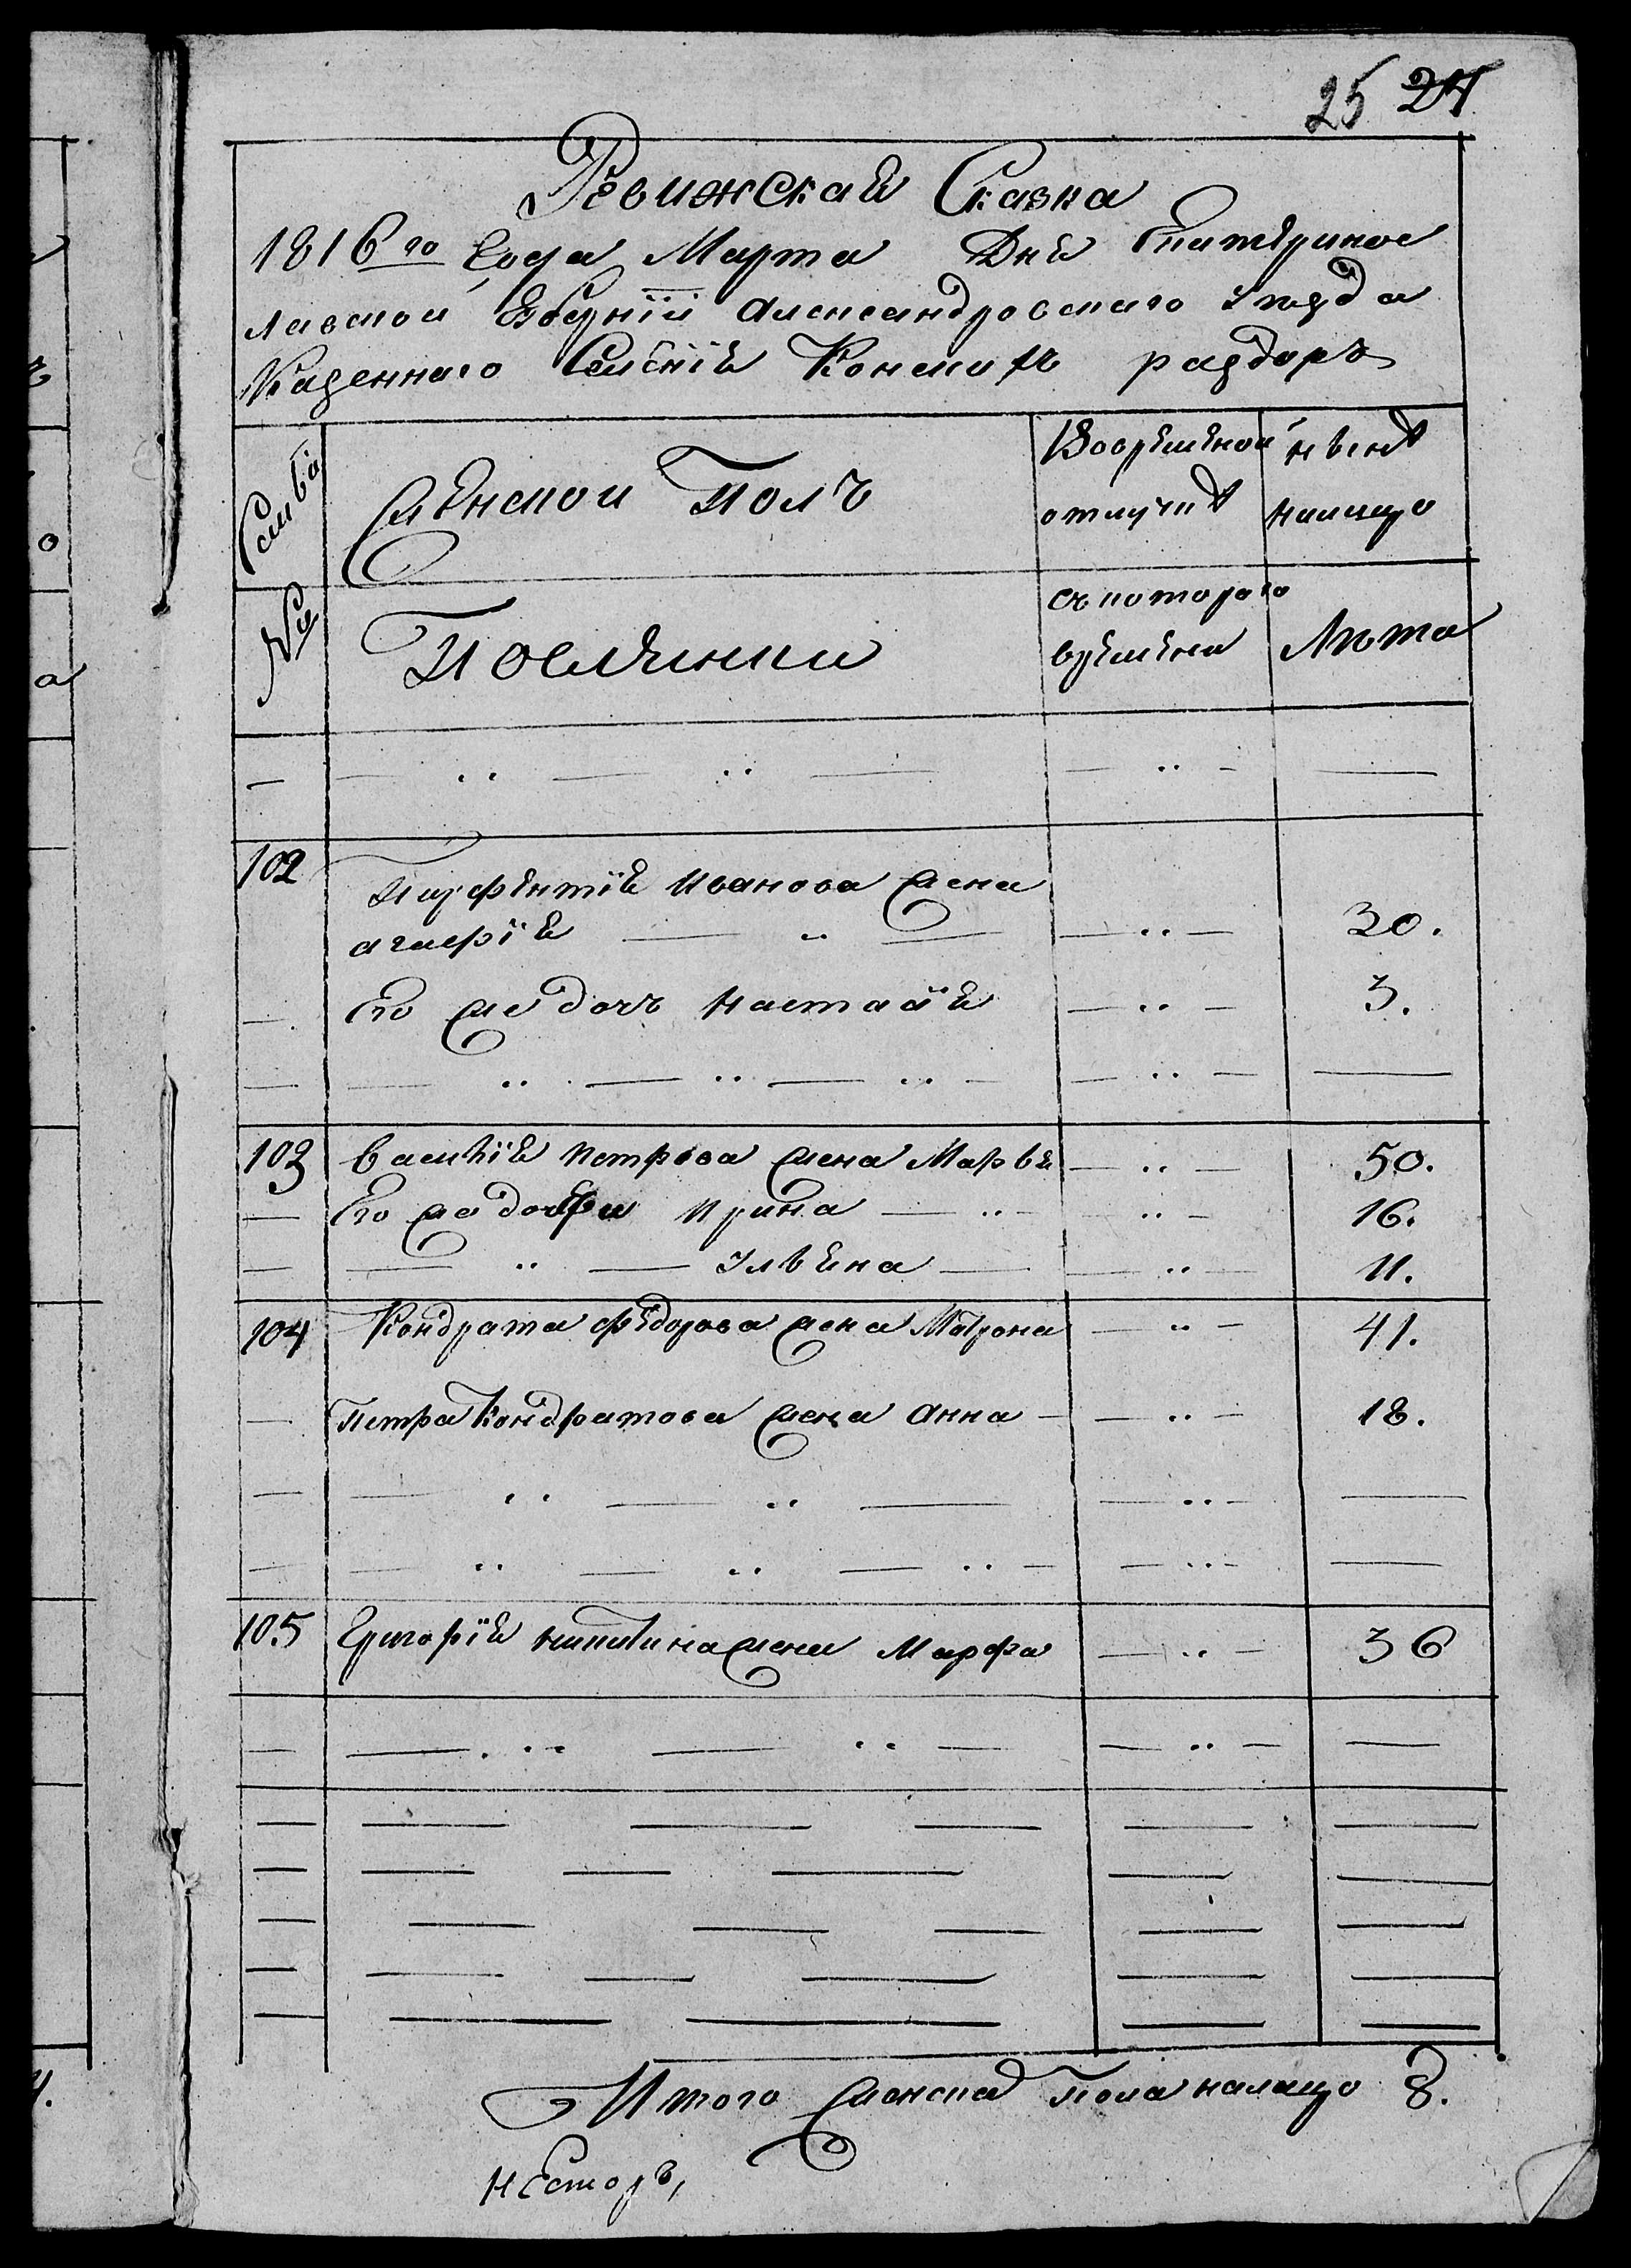 25 24
Ревижская Сказка
1816го Года Марта Дня Екатеринос
лавской Губернiи Александровскаго Уѣзда
Казеннаго Селенiя Конскихъ раздоръ
Семьи Женской Полъ Вовременной отлучкѣ нынѣ налицо
№ Поселянки съ котораго времени Лѣта
102 Парфентiя Иванова жена
агафiя 30.
Его же дочь Настаiя 3.
103 Василiя Петрова жена Марья 50.
Его же дочери Ирина 16.
Ульяна 11.
104 Кондрата Федорова жена Матрона 41.
Петра Кондратова жена Анна 18.
105 Григорiя Никитина жена Марфа 36
Итого Женска Пола налицо 8.
Несторъ,